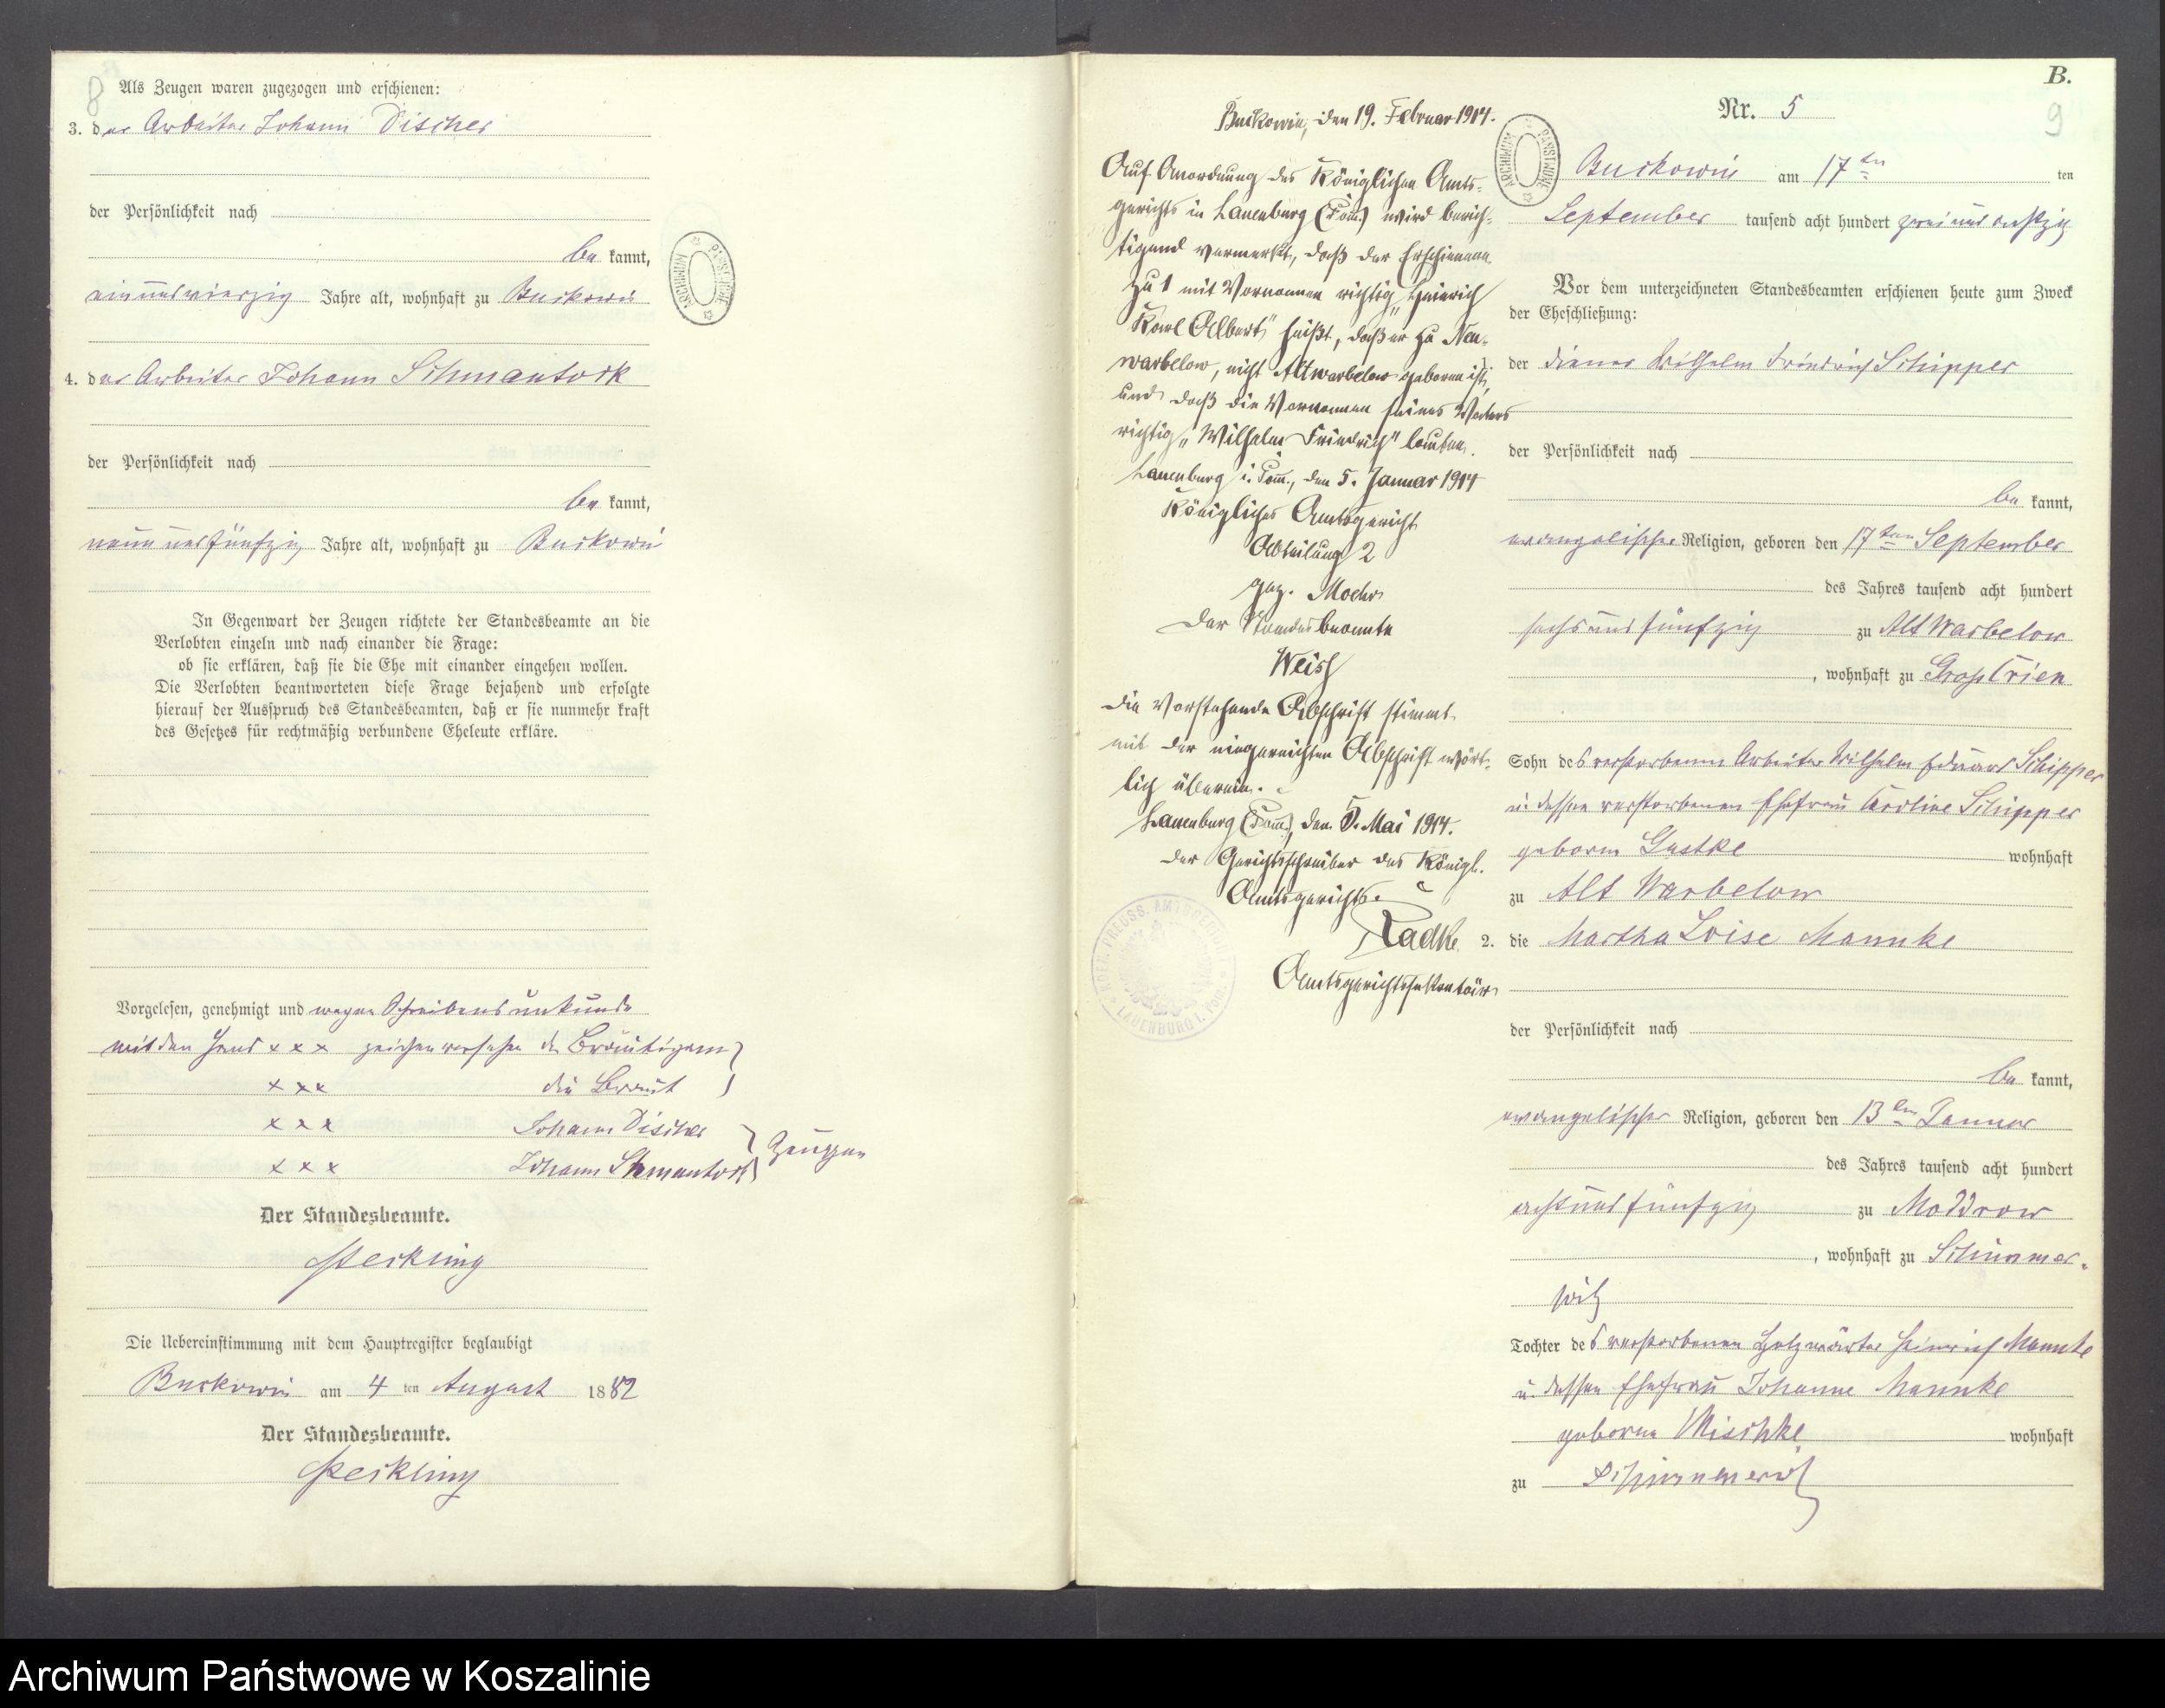 8
Als Zeugen waren zugezogen und erschienen:
3. der Arbeiter Johann Discher
der Persönlichkeit nach
be kannt,
einundvierzig Jahre alt, wohnhaft zu Buckowin
4. der Arbeiter Johann Schmantock
der Persönlichkeit nach
be kannt,
neunundfünfzig Jahre alt, wohnhaft zu Buckowin
In Gegenwart der Zeugen richtete der Standesbeamte an die
Verlobten einzeln und nach einander die Frage:
ob sie erklären, daß sie die Ehe mit einander eingehen wollen.
Die Verlobten beantworteten diese Frage bejahend und erfolgte
hierauf der Ausspruch des Standesbeamten, daß er sie nunmehr kraft
des Gesetzes für rechtmäßig verbundene Eheleute erkläre.
Vorgelesen, genehmigt und wegen Schreibensunkunde
mit den Hand x x x zeichen versehen der Bräutigam
x x x die Braut
x x x Johann Discher
x x x Johann Schmantock } Zeugen
Der Standesbeamte.
Die Uebereinstimmung mit dem Hauptregister beglaubigt
Buckowin am 4 ten August 1882
Der Standesbeamte.
ARCHIWUM PAŃSTWOWE
Buckowin, den 19. Februar 1914.
Auf Anordnung des Königlichen Amts-
gerichts in Lauenburg (Pom.) wird berich-
tigend vermerkt, daß der Erschienene
zu 1 mit Vornamen richtig „Heinrich
Karl Albert" heißt, daß er zu Neu-
warbelow, nicht Altwarbelow geboren ist,
und daß die Vornamen seines Vaters
richtig „Wilhelm Friedrich" lauten.
Lauenburg i. Pom., den 5. Januar 1914
Königliches Amtsgericht
Abteilung 2
gez.
Der Standesbeamte
Die Vorstehende Abschrift stimmt
mit der eingereichten Abschrift wört-
lich überein.
Lauenburg (Pom.), den 5. Mai 1914.
Der Gerichtsschreiber des Königl.
Amtsgerichts.
Radke
Amtsgerichtssekretär
KOEN. PREUSS. AMTSGERICHT
LAUENBURG i. Pom.
B.
9
Nr. 5
ARCHIWUM PAŃSTWOWE
Buckowin am 17ten ten
September tausend acht hundert zwei und achtzig
Vor dem unterzeichneten Standesbeamten erschienen heute zum Zweck
der Eheschließung:
1. der Diener Wilhelm Friedrich Schipper
der Persönlichkeit nach
be kannt,
evangelischer Religion, geboren den 17ten September
des Jahres tausend acht hundert
sechs und fünfzig zu Alt Warbelow
, wohnhaft zu Groß
Sohn des verstorbenen Arbeiter Wilhelm Eduard Schipper
u. dessen verstorbenen Ehefrau Caroline Schipper
geboren Gustke wohnhaft
zu Alt Warbelow
2. die Martha Loise Mannke
der Persönlichkeit nach
be kannt,
evangelischer Religion, geboren den 13ten Januar
des Jahres tausend acht hundert
achtundfünfzig zu Moddrow
, wohnhaft zu Schimmer-
witz
Tochter des verstorbenen Holzwärter Heinrich Mannke
u. dessen Ehefrau Johanne Mannke
geboren Mischke wohnhaft
zu Schimmerwitz
Archiwum Państwowe w Koszalinie